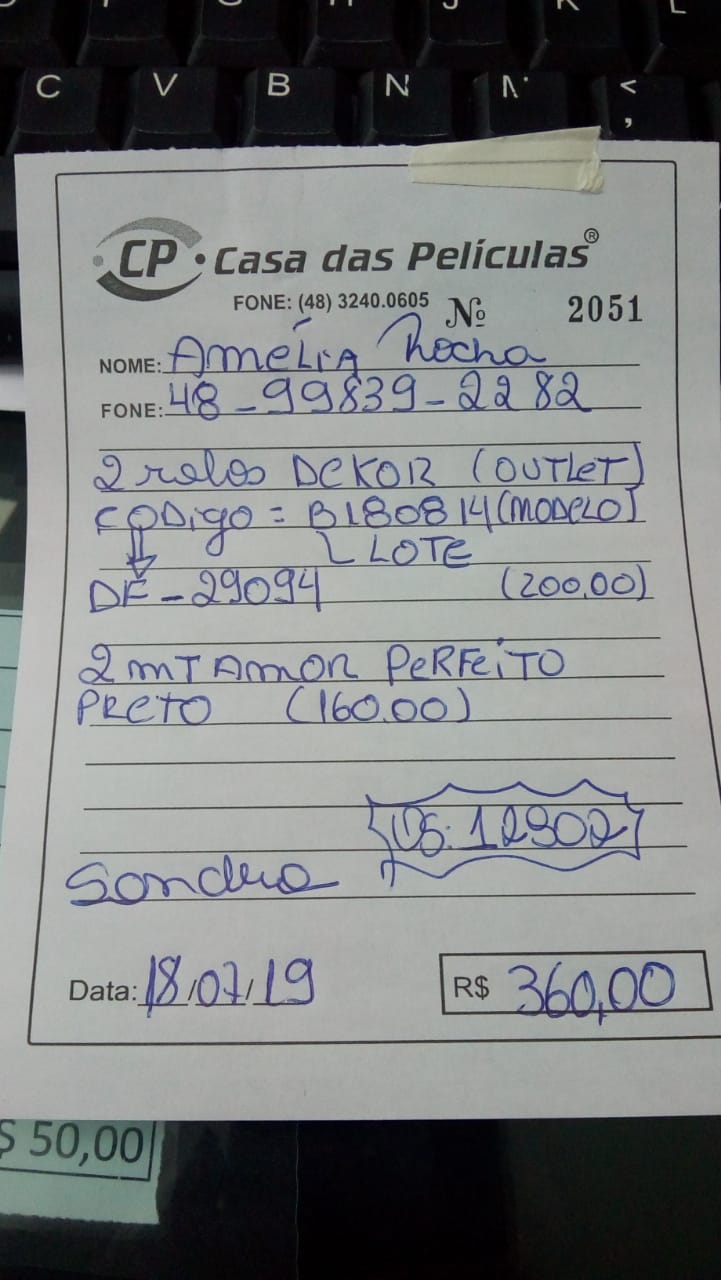 C V B N M <
,
CP • Casa das Películas®
FONE: (48) 3240.0605 Nº 2051
NOME: Amélia Rocha
FONE: 48-99839-2282
2 rolos DEKOR (OUTLET)
CÓDIGO = B180814 (MODELO)
LOTE
DF-29094 (200,00)
2 MT AMOR PERFEITO
PRETO (160.00)
OS: 12902
Sandra
Data: 18/07/19 R$ 360,00
$ 50,00